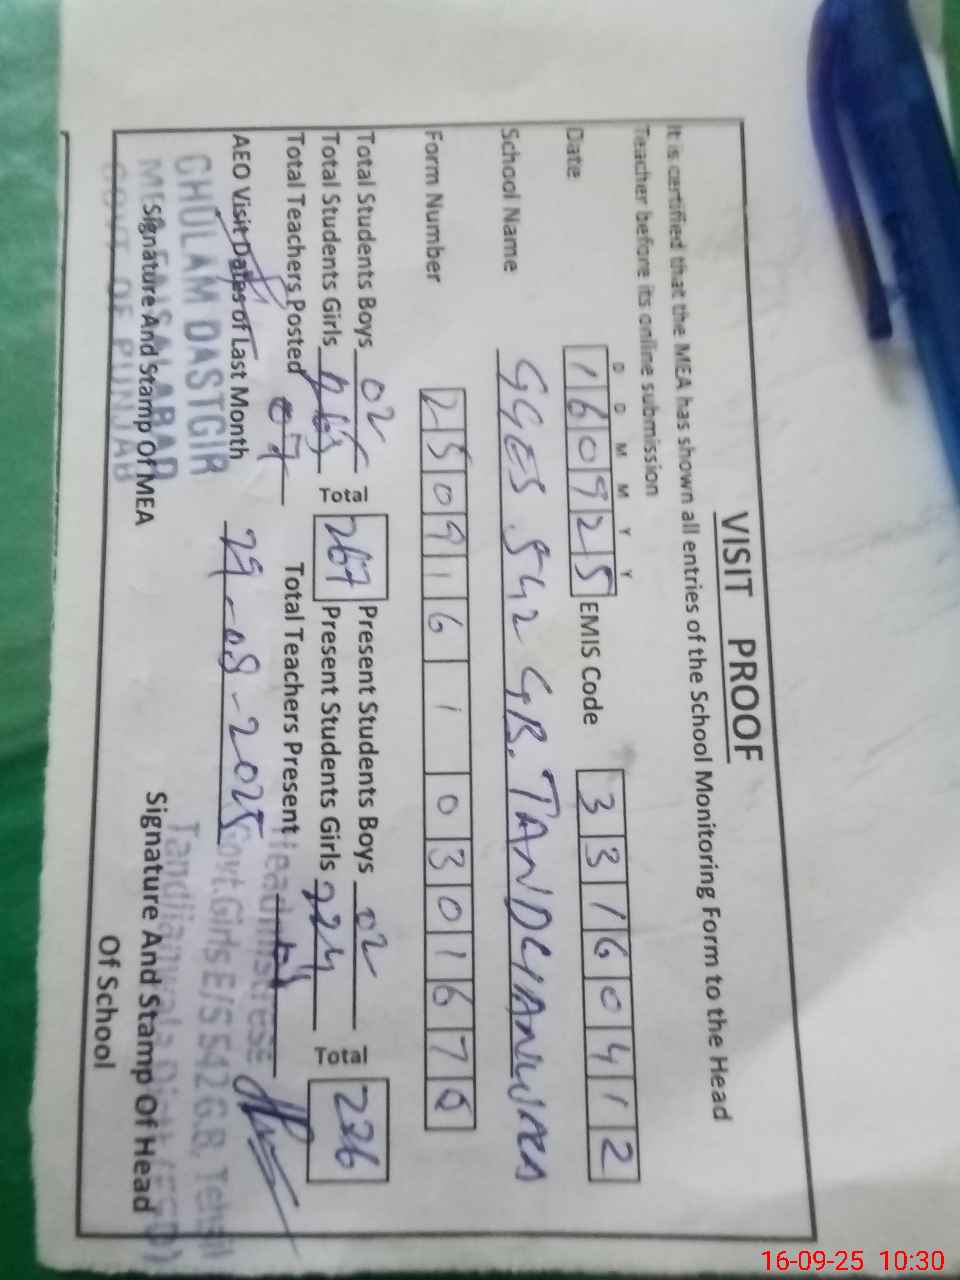 VISIT PROOF
It is certified that the MEA has shown all entries of the School Monitoring Form to the Head
Teacher before its online submission
D D M M Y Y
Date 160925 EMIS Code 33160412
School Name GGES 542 GB. TANDLIANWALA
Form Number 250916 1 0301670
Total Students Boys 02 Total Present Students Boys 02 Total
Total Students Girls 265 267 Present Students Girls 224 226
Total Teachers Posted 07 Total Teachers Present
AEO Visit Dates of Last Month 29-08-2025
GHULAM DASTGIR
MEA FAISALABAD
GOVT OF PUNJAB
Signature And Stamp Of MEA
Headmistress
Govt. Girls E/S 542 G.B, Tehsil
Tandlianwala Distt (FSD)
Signature And Stamp Of Head
Of School
16-09-25 10:30